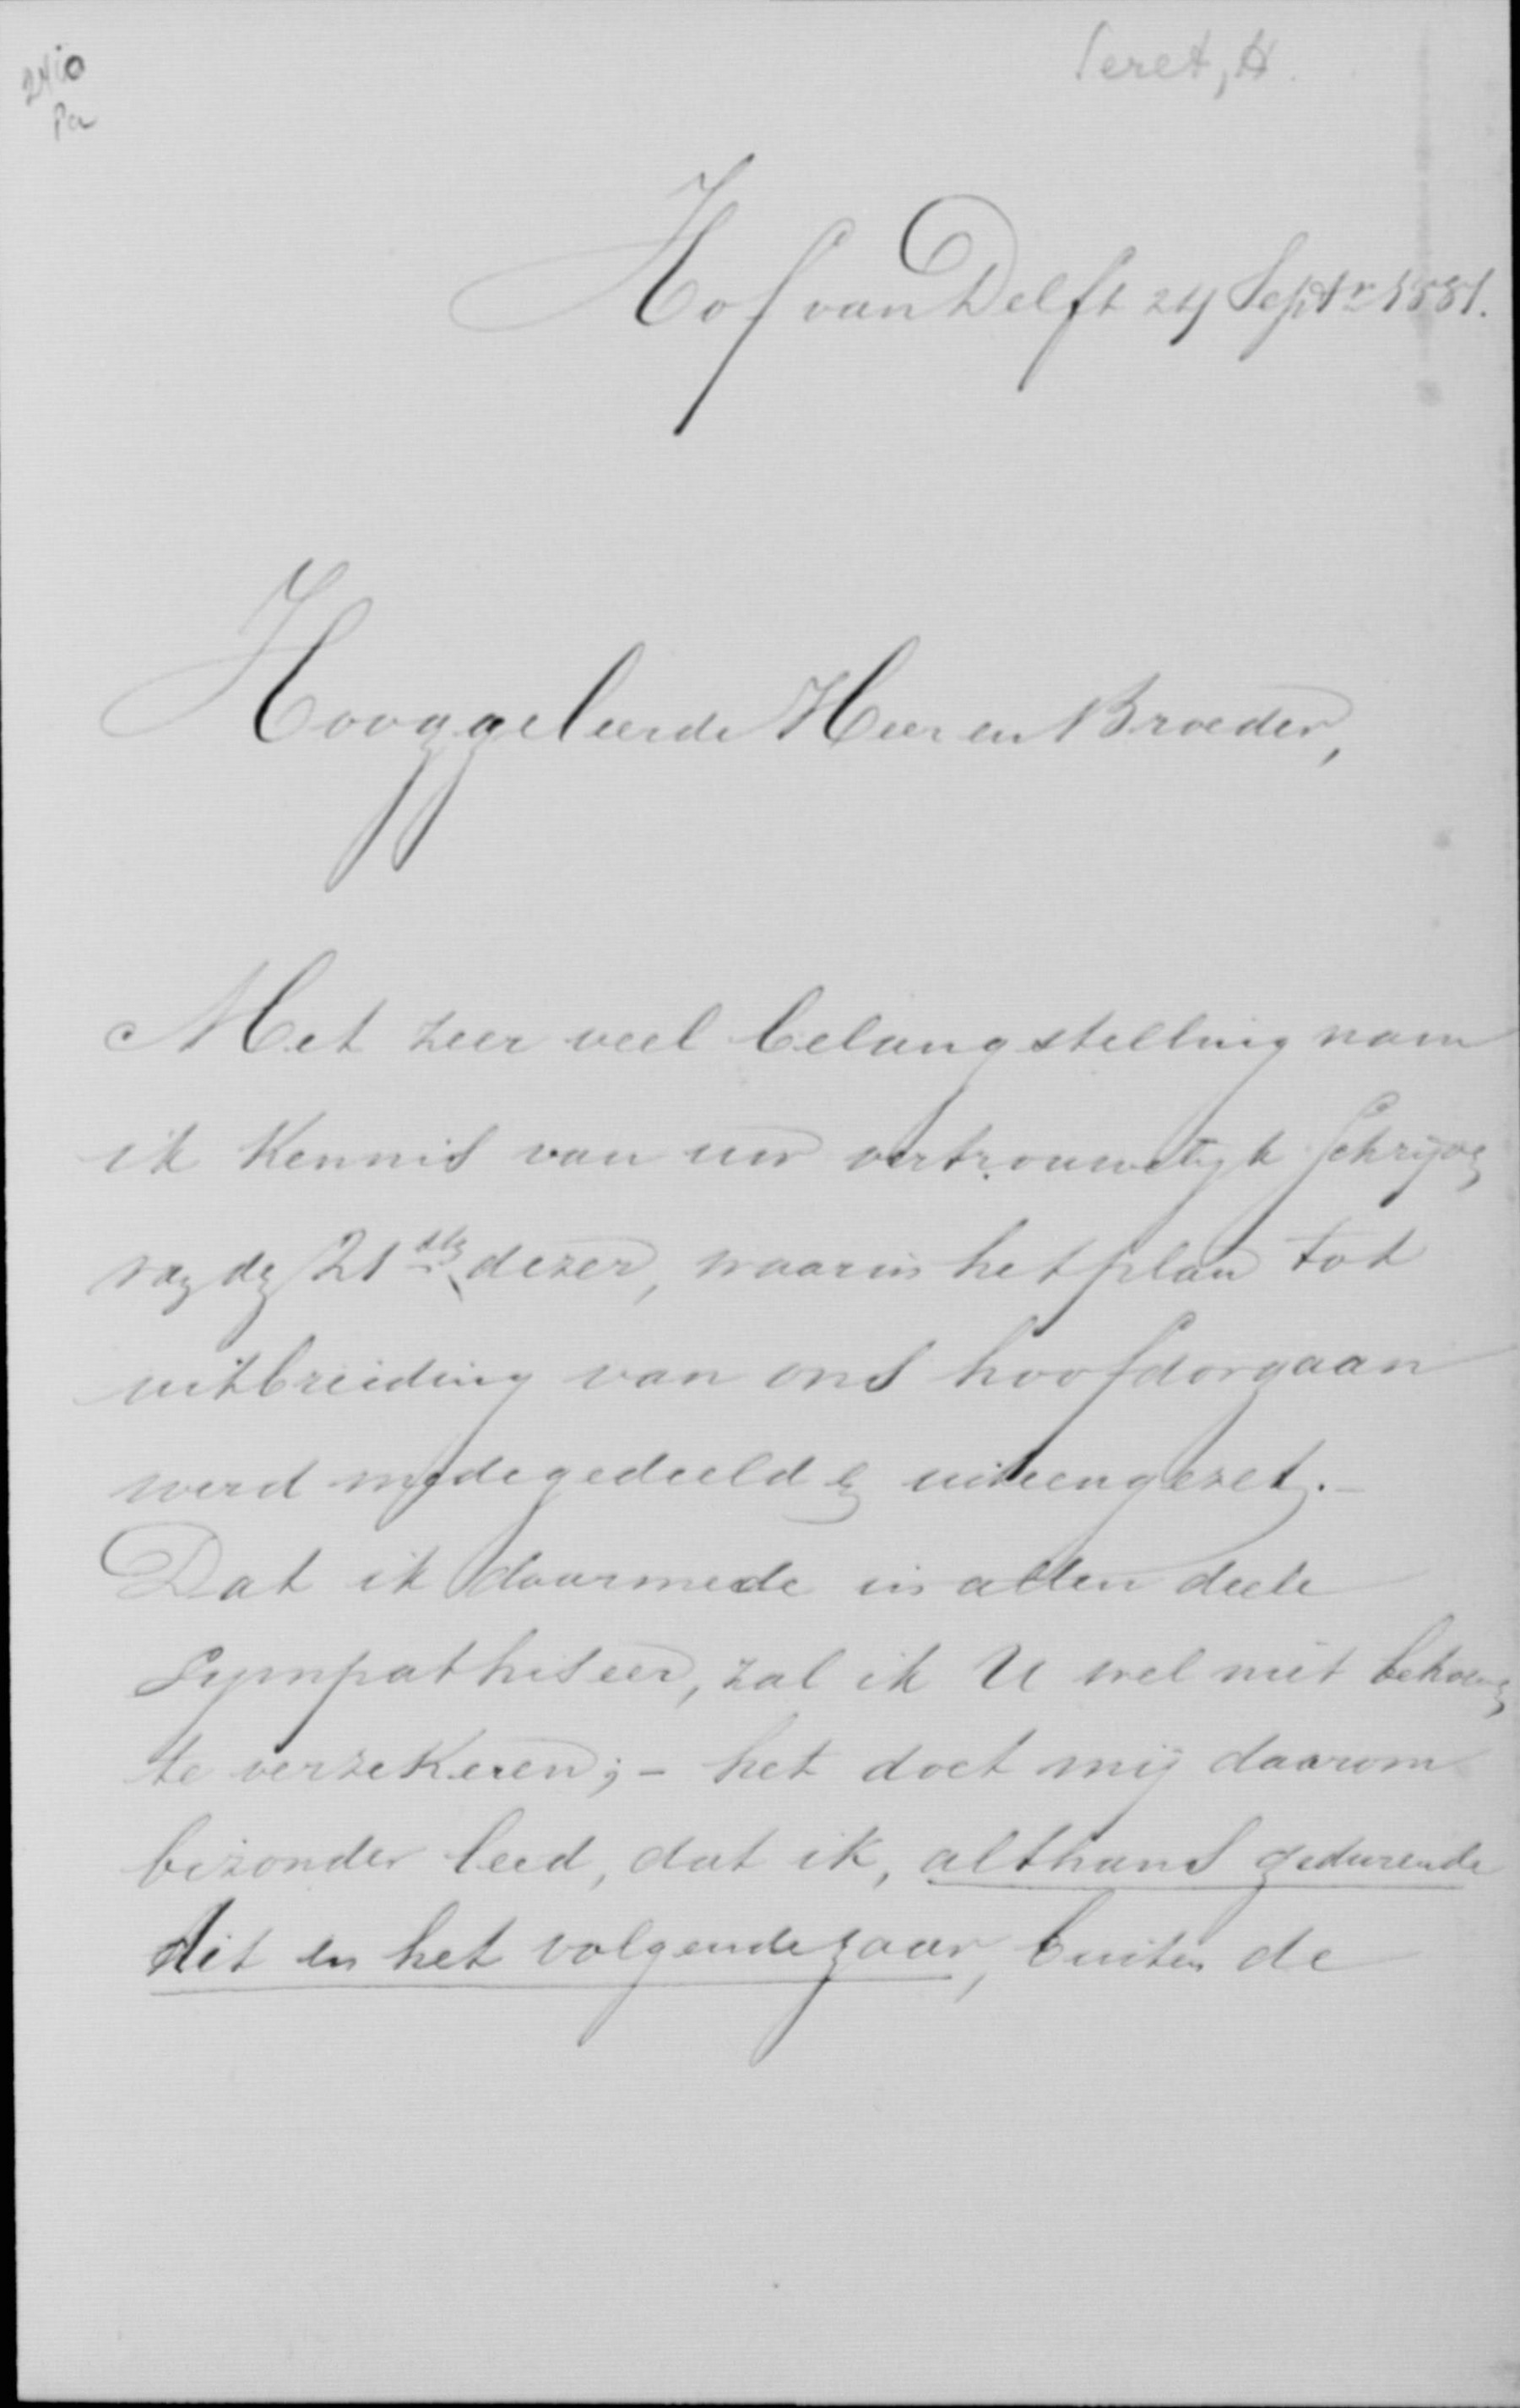 2410
Pa
Seret, H.
Hof van Delft 24 Septr 1881.
Hooggeleerde Heer en Broeder,
Met zeer veel belangstelling nam
ik kennis van uw vertrouwelijk schrijven
van den 21sten dezer, waarin het plan tot
uitbreiding van ons hoofdorgaan
werd medegedeeld en uiteengezet.-
Dat ik daarmede in allen deele
sympathiseer, zal ik U wel niet behoeven
te verzekeren; - het doet mij daarom
bizonder leed, dat ik, althans gedurende
dit en het volgende jaar, buiten de